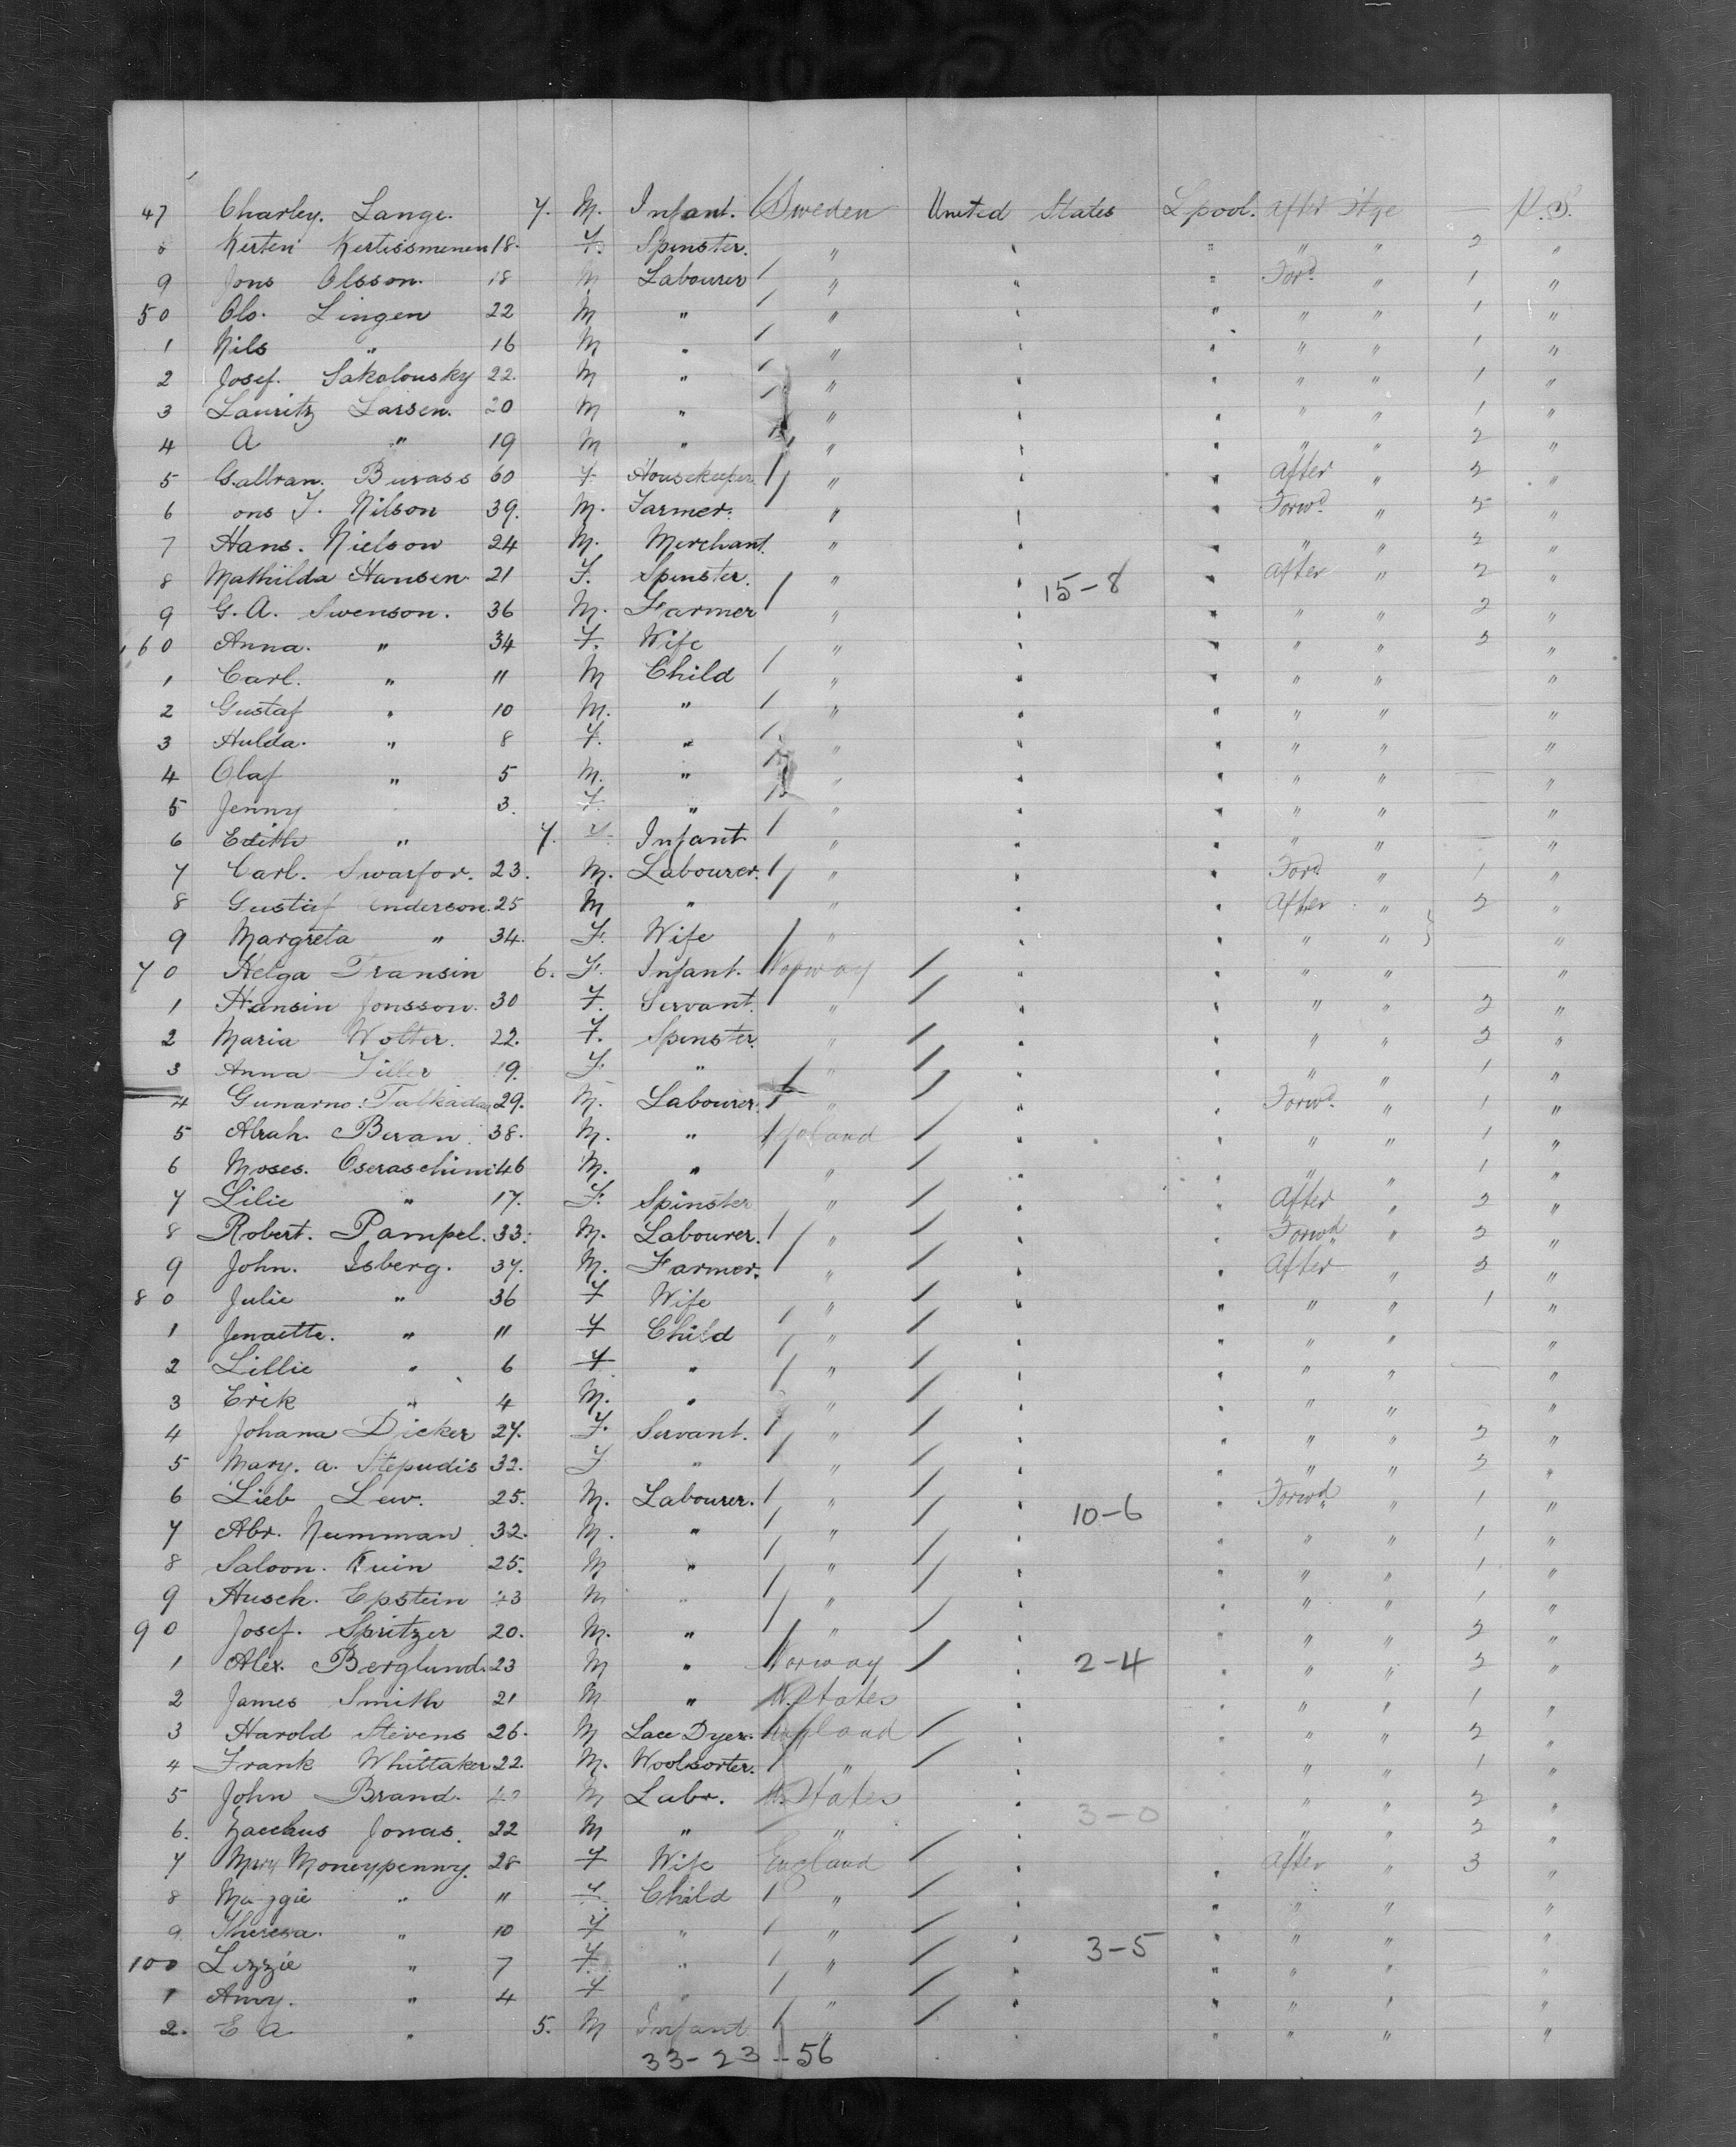 47 Charley. Lange. 7. M. Infant. Sweden United States L'pool. after St'ge — P.S.
8 Kirten Kertissmenen 18. F. Spinster. " " " " " 2 "
9 Jons Olsson. 18 M Labourer " " " Ford " 1 "
50 Olo. Lingen 22 M " " " " " " 1 "
1 Nils " 16 M " " " " " " 1 "
2 Josef. Sakolousky 22. M " " " " " " 1 "
3 Lauritz Larsen. 20 M " " " " " " 1 "
4 A " 19 M " " " " " " 2 "
5 Galbran. Burass 60 F Housekeeper. " " " After " 2 "
6 ons J. Nilson 39. M. Farmer. " " " Forwd " 2 "
7 Hans. Nielson 24 M. Merchant. " " " " " 2 "
8 Mathilda Hansen. 21 F. Spinster. " " 15-8 " after " 2 "
9 G. A. Swenson. 36 M. Farmer " " " " " 2 "
60 Anna. " 34 F. Wife " " " " " 2 "
1 Carl. " 11 M Child " " " " " "
2 Gustaf " 10 M. " " " " " " "
3 Hulda. " 8 F. " " " " " " "
4 Olaf " 5 M. " " " " " " "
5 Jenny 3. F. " " " " " " "
6 Edith " 7. F. Infant " " " " " — "
7 Carl. Swarfor. 23. M. Labourer. " " " Ford " 1 "
8 Gustaf Anderson. 25 M " " " " After " 2 "
9 Margreta " 34. F. Wife " " " " " "
70 Helga Fransin 6. F. Infant. Norway " " " " — "
1 Hansin Jonsson. 30 F. Servant. " " " " " 2 "
2 Maria Wolter. 22. F. Spinster. " " " " " 2 "
3 Anna Tiller 19. F. " " " " " " 1 "
4 Gunarno. 29. M. Labourer. " " " Forwd " 1 "
5 Abrah. Beran. 38. M. " Poland " " " " 1 "
6 Moses. Oseraschini 46 M. " " " " " " 1 "
7 Lilie " 17. F. Spinster " " " After " 2 "
8 Robert. Pampel. 33. M. Labourer. " " " Forwd " 2 "
9 John. Isberg. 37. M. Farmer. " " " After " 2 "
80 Julie " 36 F Wife " " " " " 1 "
1 Jenaette. " 11 F Child " " " " " — "
2 Lillie " 6 F " " " " " " — "
3 Erik " 4 M. " " " " " " — "
4 Johana Dicker 27. F. Servant. " " " " " 2 "
5 Mary. a. Stepudis 32. F " " " " " " 2 "
6 Lieb Lew. 25. M. Labourer. " " 10-6 " Forwd " 1 "
7 Abr. Numman 32. M. " " " " " " 1 "
8 Saloon. Kuin 25. M " " " " " " 1 "
9 Husch. Epstein 23 M " " " " " " 1 "
90 Josef. Spritzer 20. M. " " " " " " 2 "
1 Alex. Berglund. 23 M " Norway " 2-4 " " " 2 "
2 James Smith 21 M " U. States " " " " 1 "
3 Harold Stevens 26. M Lace Dyer. England " " " " 2 "
4 Frank Whittaker 22. M. Woolsorter. " " " " " 1 "
5 John Brand. M Labr. U. States " 3-0 " " " 2 "
6. Zacchus Jonas. 22 M " " " " " " 2 "
7 Mary Moneypenny. 28 F Wife England " " After " 3 "
8 Maggie " 11 F Child " " " " " "
9 Theresa. " 10 F " " " " " " "
100 Lizzie " 7 F. " " " 3-5 " " " "
1 Amy. " 4 F " " " " " " "
2. E A " 5. M Infant " " " " " "
33-23-56